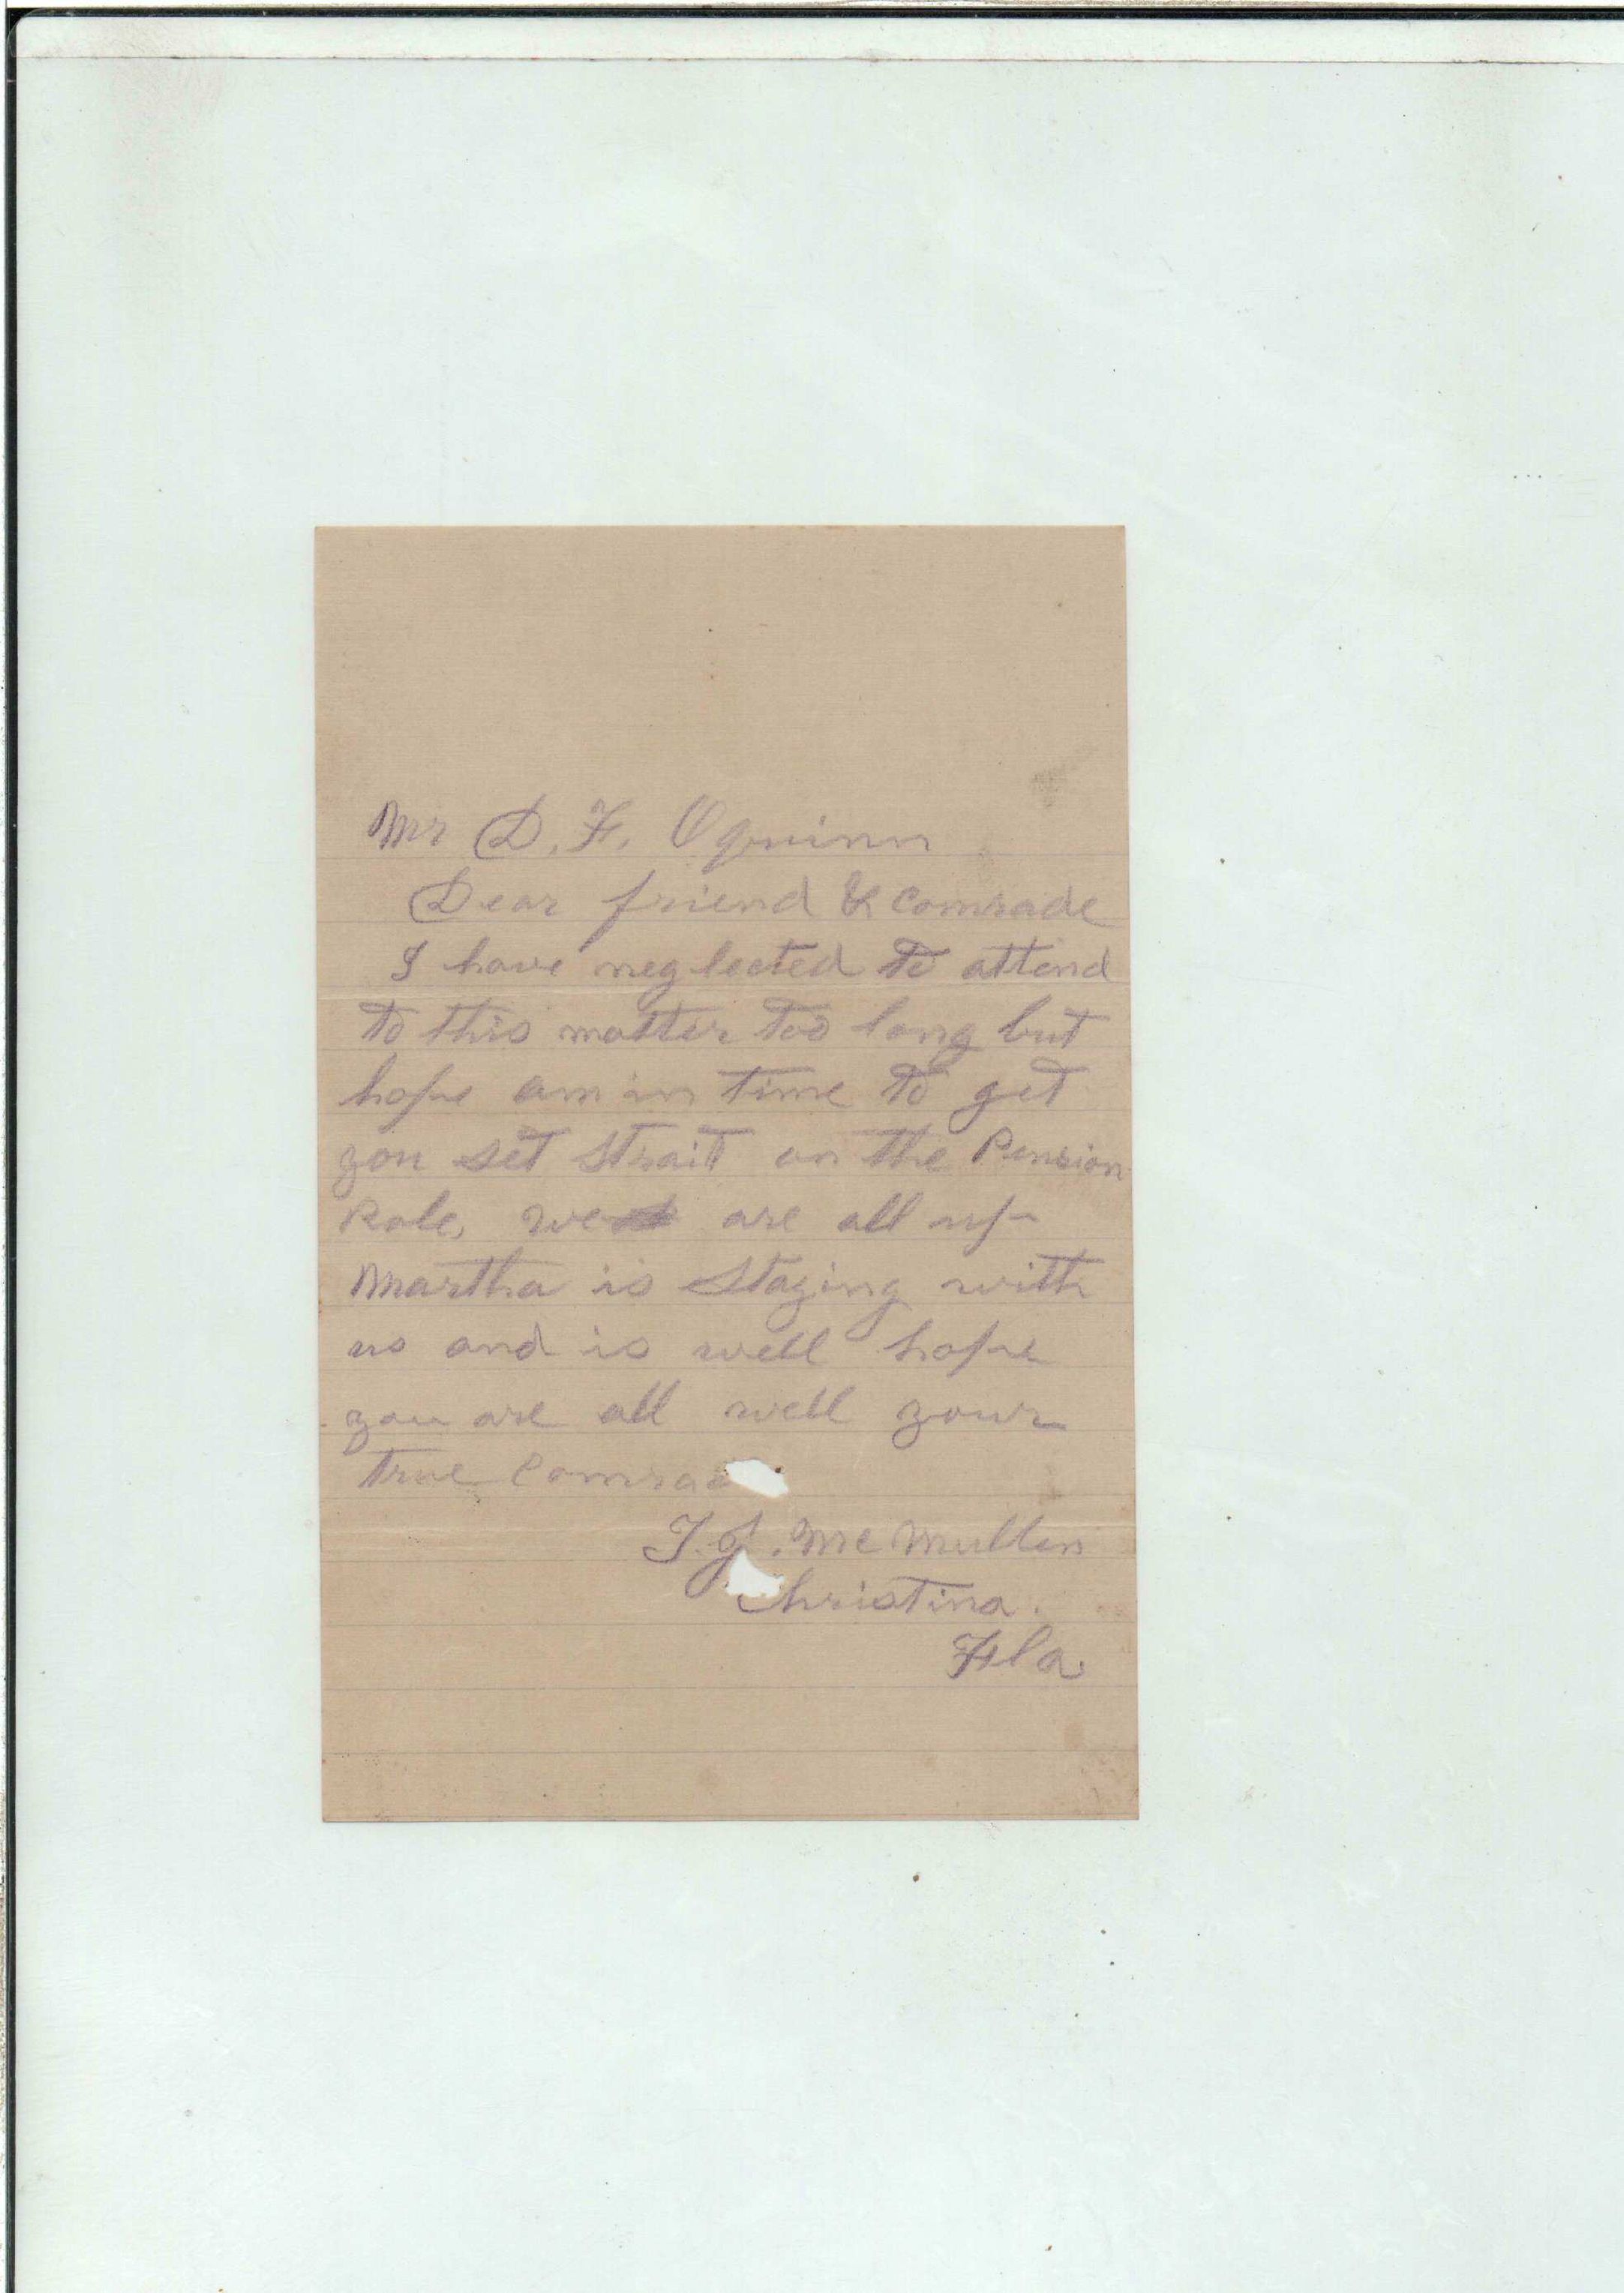 Mr D. F. Oquinn
Dear friend & Comrade
I have neglected to attend
to this matter too long but
hope am in time to get
you set strait on the Pension
Role, we are all up
Martha is staying with
us and is well hope
you are all well your
true Comrad
T. J. McMullen
Christina.
Fla.